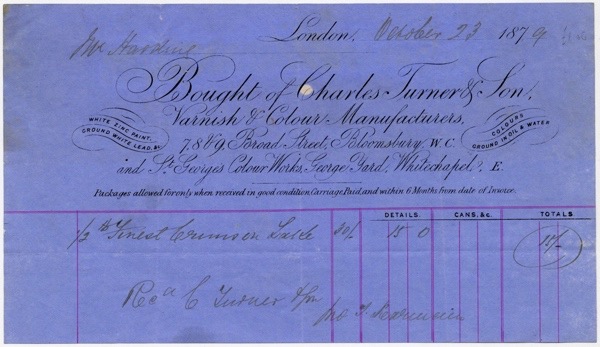 London, October 23 1879
Mr Harding
Bought of Charles Turner & Son,
Varnish & Colour Manufacturers,
WHITE ZINC PAINT,
GROUND WHITE LEAD, &c
COLOURS
GROUND IN OIL & WATER
7, 8 & 9, Broad Street, Bloomsbury, W.C.
and St. Georges Colour Works, George Yard, Whitechapel, E.
Packages allowed for only when received in good condition, Carriage Paid, and within 6 Months from date of Invoice.
DETAILS. CANS, &c. TOTALS
1/2 lb Finest Crimson Lake 30/- 15 0 15/-
Recd C Turner & Son